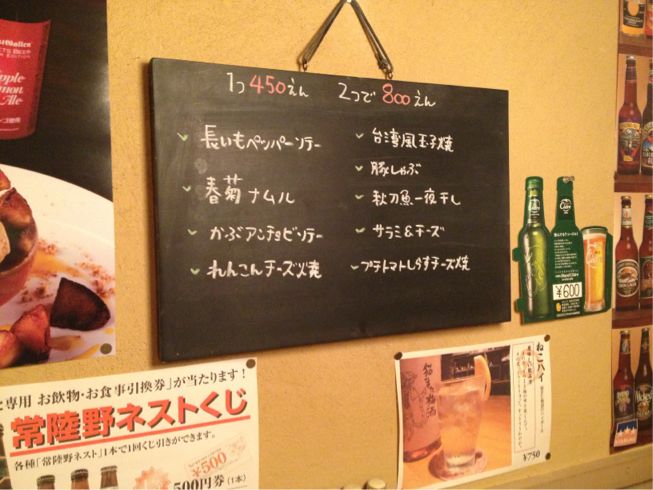 1つ 450えん 2つで 800えん
長いもペッパーソテー
春菊ナムル
かぶアンチョビソテー
れんこんチーズ焼
台湾風玉子焼
豚しゃぶ
秋刀魚一夜干し
サラミ&チーズ
プチトマトしらすチーズ焼
¥600
専用 お飲物・お食事引換券」が当たります!
常陸野ネストくじ
各種「常陸野ネスト」1本で1回くじ引きができます。
¥500
500円券(1本)
ねこハイ
¥750